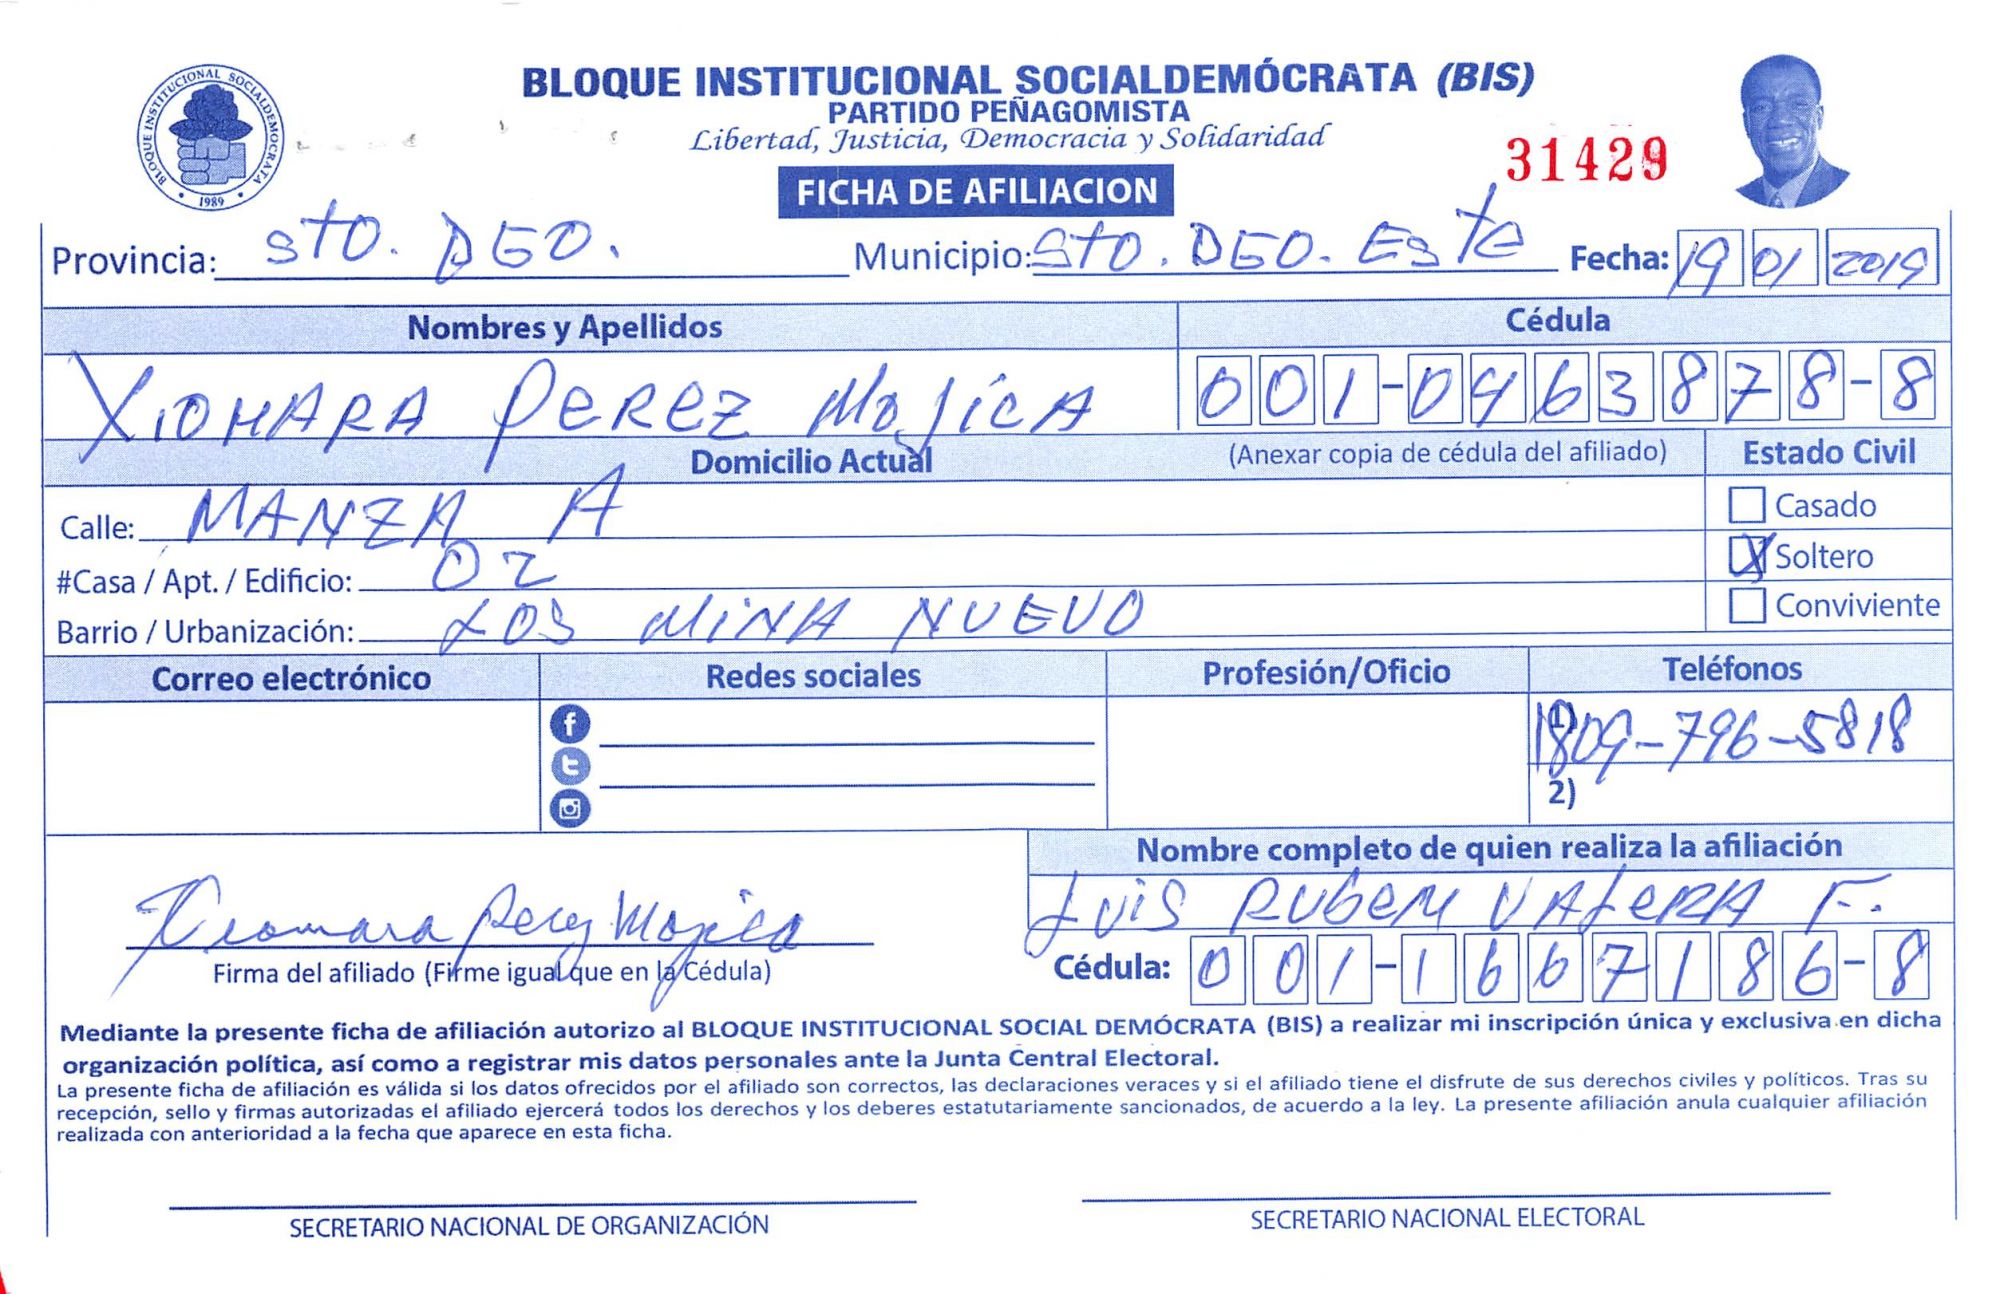 BLOQUE INSTITUCIONAL SOCIALDEMÓCRATA (BIS)
PARTIDO PEÑAGOMISTA
Libertad, Justicia, Democracia y Solidaridad
BLOQUE INSTITUCIONAL SOCIALDEMOCRATA
1989
31429
FICHA DE AFILIACION
Provincia: STO. DGO. Municipio: STO. DGO. ESte Fecha: 19 01 2019
Nombres y Apellidos Cédula
XIOMARA PEREZ MOJICA 001-0463878-8
Domicilio Actual (Anexar copia de cédula del afiliado) Estado Civil
Calle: MANZA A Casado
#Casa / Apt. / Edificio: 02 X Soltero
Barrio / Urbanización: LOS MINA NUEVO Conviviente
Correo electrónico Redes sociales Profesión/Oficio Teléfonos
1) 809-796-5818
2)
Nombre completo de quien realiza la afiliación
LUIS RUBEN VALERA F.
Xiomara Perez Mojica
Firma del afiliado (Firme igual que en la Cédula) Cédula: 001-1667186-8
Mediante la presente ficha de afiliación autorizo al BLOQUE INSTITUCIONAL SOCIAL DEMÓCRATA (BIS) a realizar mi inscripción única y exclusiva en dicha
organización política, así como a registrar mis datos personales ante la Junta Central Electoral.
La presente ficha de afiliación es válida si los datos ofrecidos por el afiliado son correctos, las declaraciones veraces y si el afiliado tiene el disfrute de sus derechos civiles y políticos. Tras su
recepción, sello y firmas autorizadas el afiliado ejercerá todos los derechos y los deberes estatutariamente sancionados, de acuerdo a la ley. La presente afiliación anula cualquier afiliación
realizada con anterioridad a la fecha que aparece en esta ficha.
SECRETARIO NACIONAL DE ORGANIZACIÓN SECRETARIO NACIONAL ELECTORAL